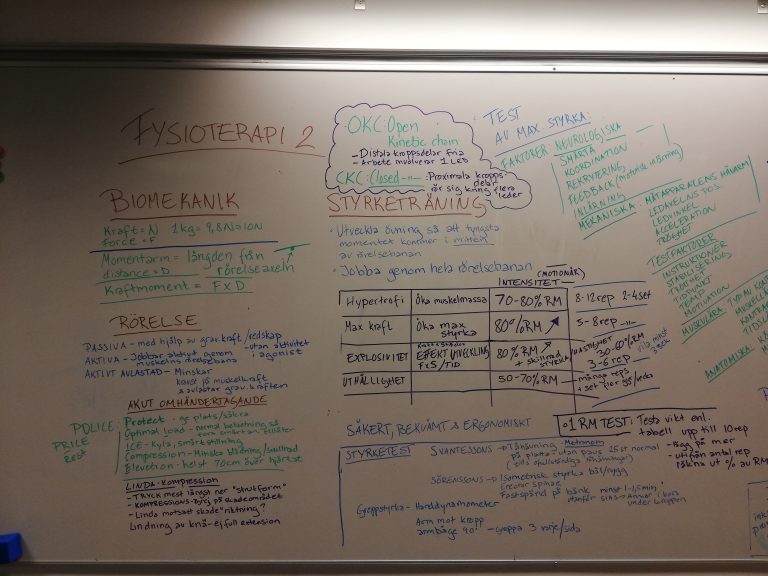 FYSIOTERAPI 2
BIOMEKANIK
Kraft = N 1kg = 9,8N ≈ 10N
Force = F
Momentarm = längden från
distance = D rörelseaxeln
Kraftmoment = F x D
RÖRELSE
PASSIVA - med hjälp av grav.kraft/redskap
- utan aktivitet
AKTIVA - Jobbar aktivt genom i agonist
muskelns rörelsebana
AKTIVT AVLASTAD - Minskar
på muskelkraft
avlastar grav.kraften
AKUT OMHÄNDERTAGANDE
POLICE: Protect - ge plats/säkra
PRICE Optimal load - normal belastning så
Rest
ICE - Kyla, smärtstillning
Compression - Minska blödning/svullnad
Elevation - helst 70cm över hjärtat
LINDA - Kompression
- TRYCK mest längst ner "strutform"
- KOMPRESSIONS på skadeområdet
- Linda motsatt skade"riktning"
Lindning av knä - ej full extension
OKC: Open
Kinetic chain
- Distala kroppsdelar fria
- Arbete involverar 1 LED
CKC: Closed -||- : Proximala kropps-
delar
rör sig kring flera
leder
STYRKETRÄNING
· Utveckla övning så att tyngsta
momentet kommer i mitten
av rörelsebanan
· Jobba genom hela rörelsebanan
(MOTIONÄR)
INTENSITET -
Hypertrofi Öka muskelmassa 70-80% RM 8-12 rep 2-4 set
Max kraft Öka max styrka 80% RM 5-8 rep -||-
EXPLOSIVITET EFFEKT UTVECKLING FxS/TID 80% RM + skillnad STYRKA/HASTIGHET 30-60% RM 3-6 rep vila minst
UTHÅLLIGHET 50-70% RM många reps + set
SÄKERT, BEKVÄMT & ERGONOMISKT
STYRKETEST
SVANTESSONS → Tåhävning - Metronom
på platta - utan paus 25st normal
SÖRENSSONS → Isometrisk styrka bål/rygg
Erector Spinae
Fastspänd på bänk minst 1-1,5min
Greppstyrka - Handdynamometer
Arm mot kropp
armbåge 90° - Greppa 3 varje/sida
1 RM TEST: Testa vikt enl.
tabell upp till 10 rep
- Lägg på mer
- utifrån antal rep
räkna ut % av RM
TEST
AV MAX STYRKA:
FAKTORER: NEUROLOGISKA
SMÄRTA
KOORDINATION
REKRYTERING
FEEDBACK (motorisk inlärning)
INLÄRNING
MEKANISKA: MÄTAPPARATENS HÄVARM
LEDAXELNS POS.
LEDVINKEL
ACCELERATION
TRÖGHET
TESTFAKTORER
INSTRUKTIONER
STABILISERING
TRÖTTHET
TIDPUNKT
TEMP
MOTIVATION
MUSKULÄRA: TYP AV
ANATOMISKA: